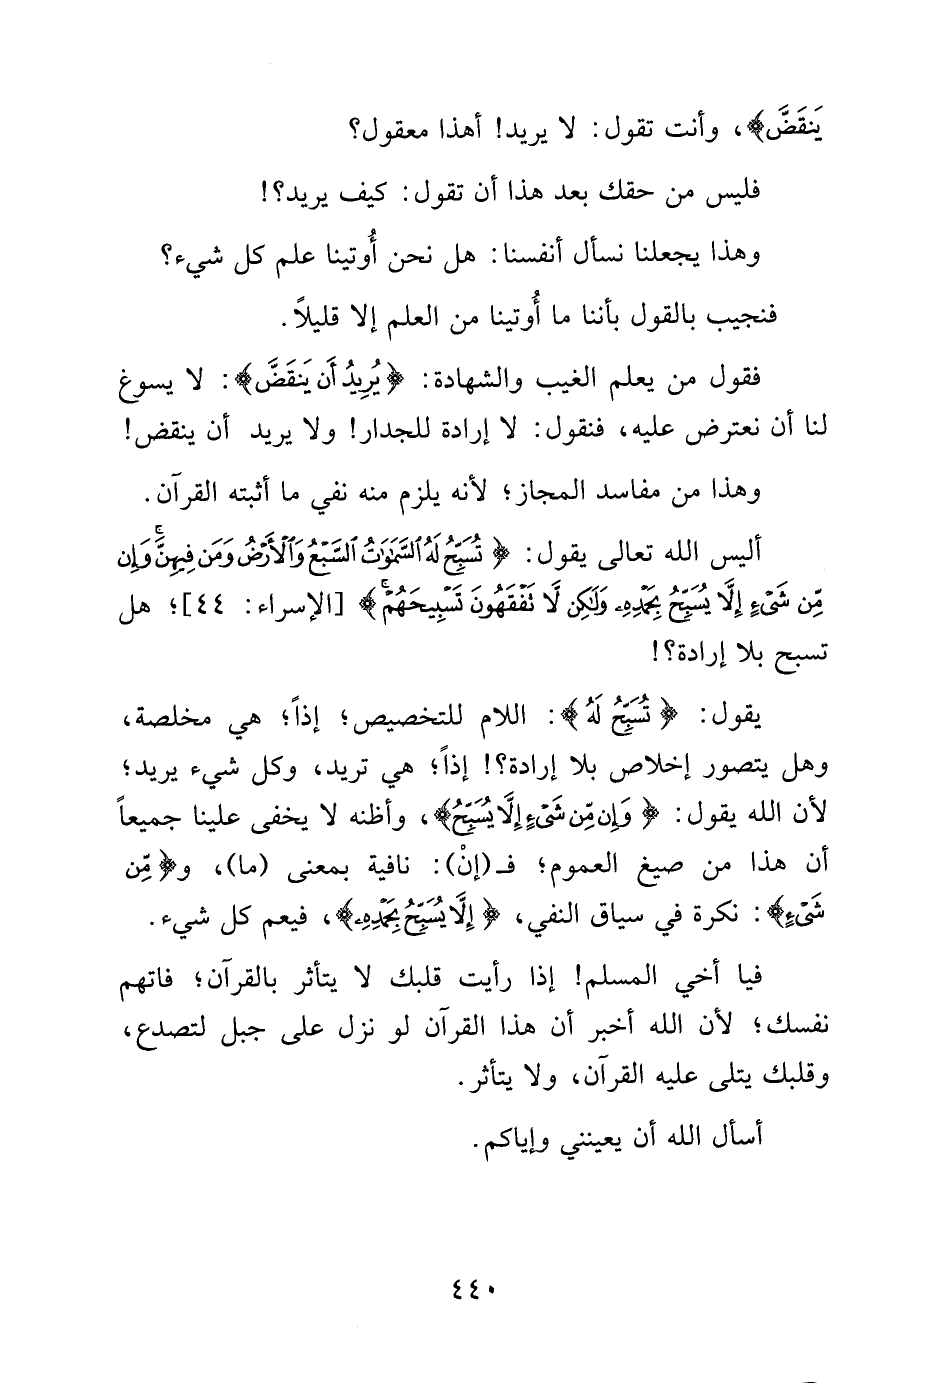 يَنقَضَّ﴾، وأنت تقول: لا يريد! أهذا معقول؟
فليس من حقك بعد هذا أن تقول: كيف يريد؟!
وهذا يجعلنا نسأل أنفسنا: هل نحن أُوتينا علم كل شيء؟
فنجيب بالقول بأننا ما أُوتينا من العلم إلا قليلاً.
فقول من يعلم الغيب والشهادة: ﴿يُرِيدُ أَن يَنقَضَّ﴾: لا يسوغ
لنا أن نعترض عليه، فنقول: لا إرادة للجدار! ولا يريد أن ينقض!
وهذا من مفاسد المجاز؛ لأنه يلزم منه نفي ما أثبته القرآن.
أليس الله تعالى يقول: ﴿تُسَبِّحُ لَهُ ٱلسَّمَٰوَٰتُ ٱلسَّبْعُ وَٱلْأَرْضُ وَمَن فِيهِنَّۚ وَإِن
مِّن شَىْءٍ إِلَّا يُسَبِّحُ بِحَمْدِهِۦ وَلَٰكِن لَّا تَفْقَهُونَ تَسْبِيحَهُمْۚ﴾ [الإسراء: ٤٤]؛ هل
تسبح بلا إرادة؟!
يقول: ﴿تُسَبِّحُ لَهُ﴾: اللام للتخصيص؛ إذاً؛ هي مخلصة،
وهل يتصور إخلاص بلا إرادة؟! إذاً؛ هي تريد، وكل شيء يريد؛
لأن الله يقول: ﴿وَإِن مِّن شَىْءٍ إِلَّا يُسَبِّحُ﴾، وأظنه لا يخفى علينا جميعاً
أن هذا من صيغ العموم؛ فـ(إنْ): نافية بمعنى (ما)، و﴿مِّن
شَىْءٍ﴾: نكرة في سياق النفي، ﴿إِلَّا يُسَبِّحُ بِحَمْدِهِۦ﴾، فيعم كل شيء.
فيا أخي المسلم! إذا رأيت قلبك لا يتأثر بالقرآن؛ فاتهم
نفسك؛ لأن الله أخبر أن هذا القرآن لو نزل على جبل لتصدع،
وقلبك يتلى عليه القرآن، ولا يتأثر.
أسأل الله أن يعينني وإياكم.
٤٤٠